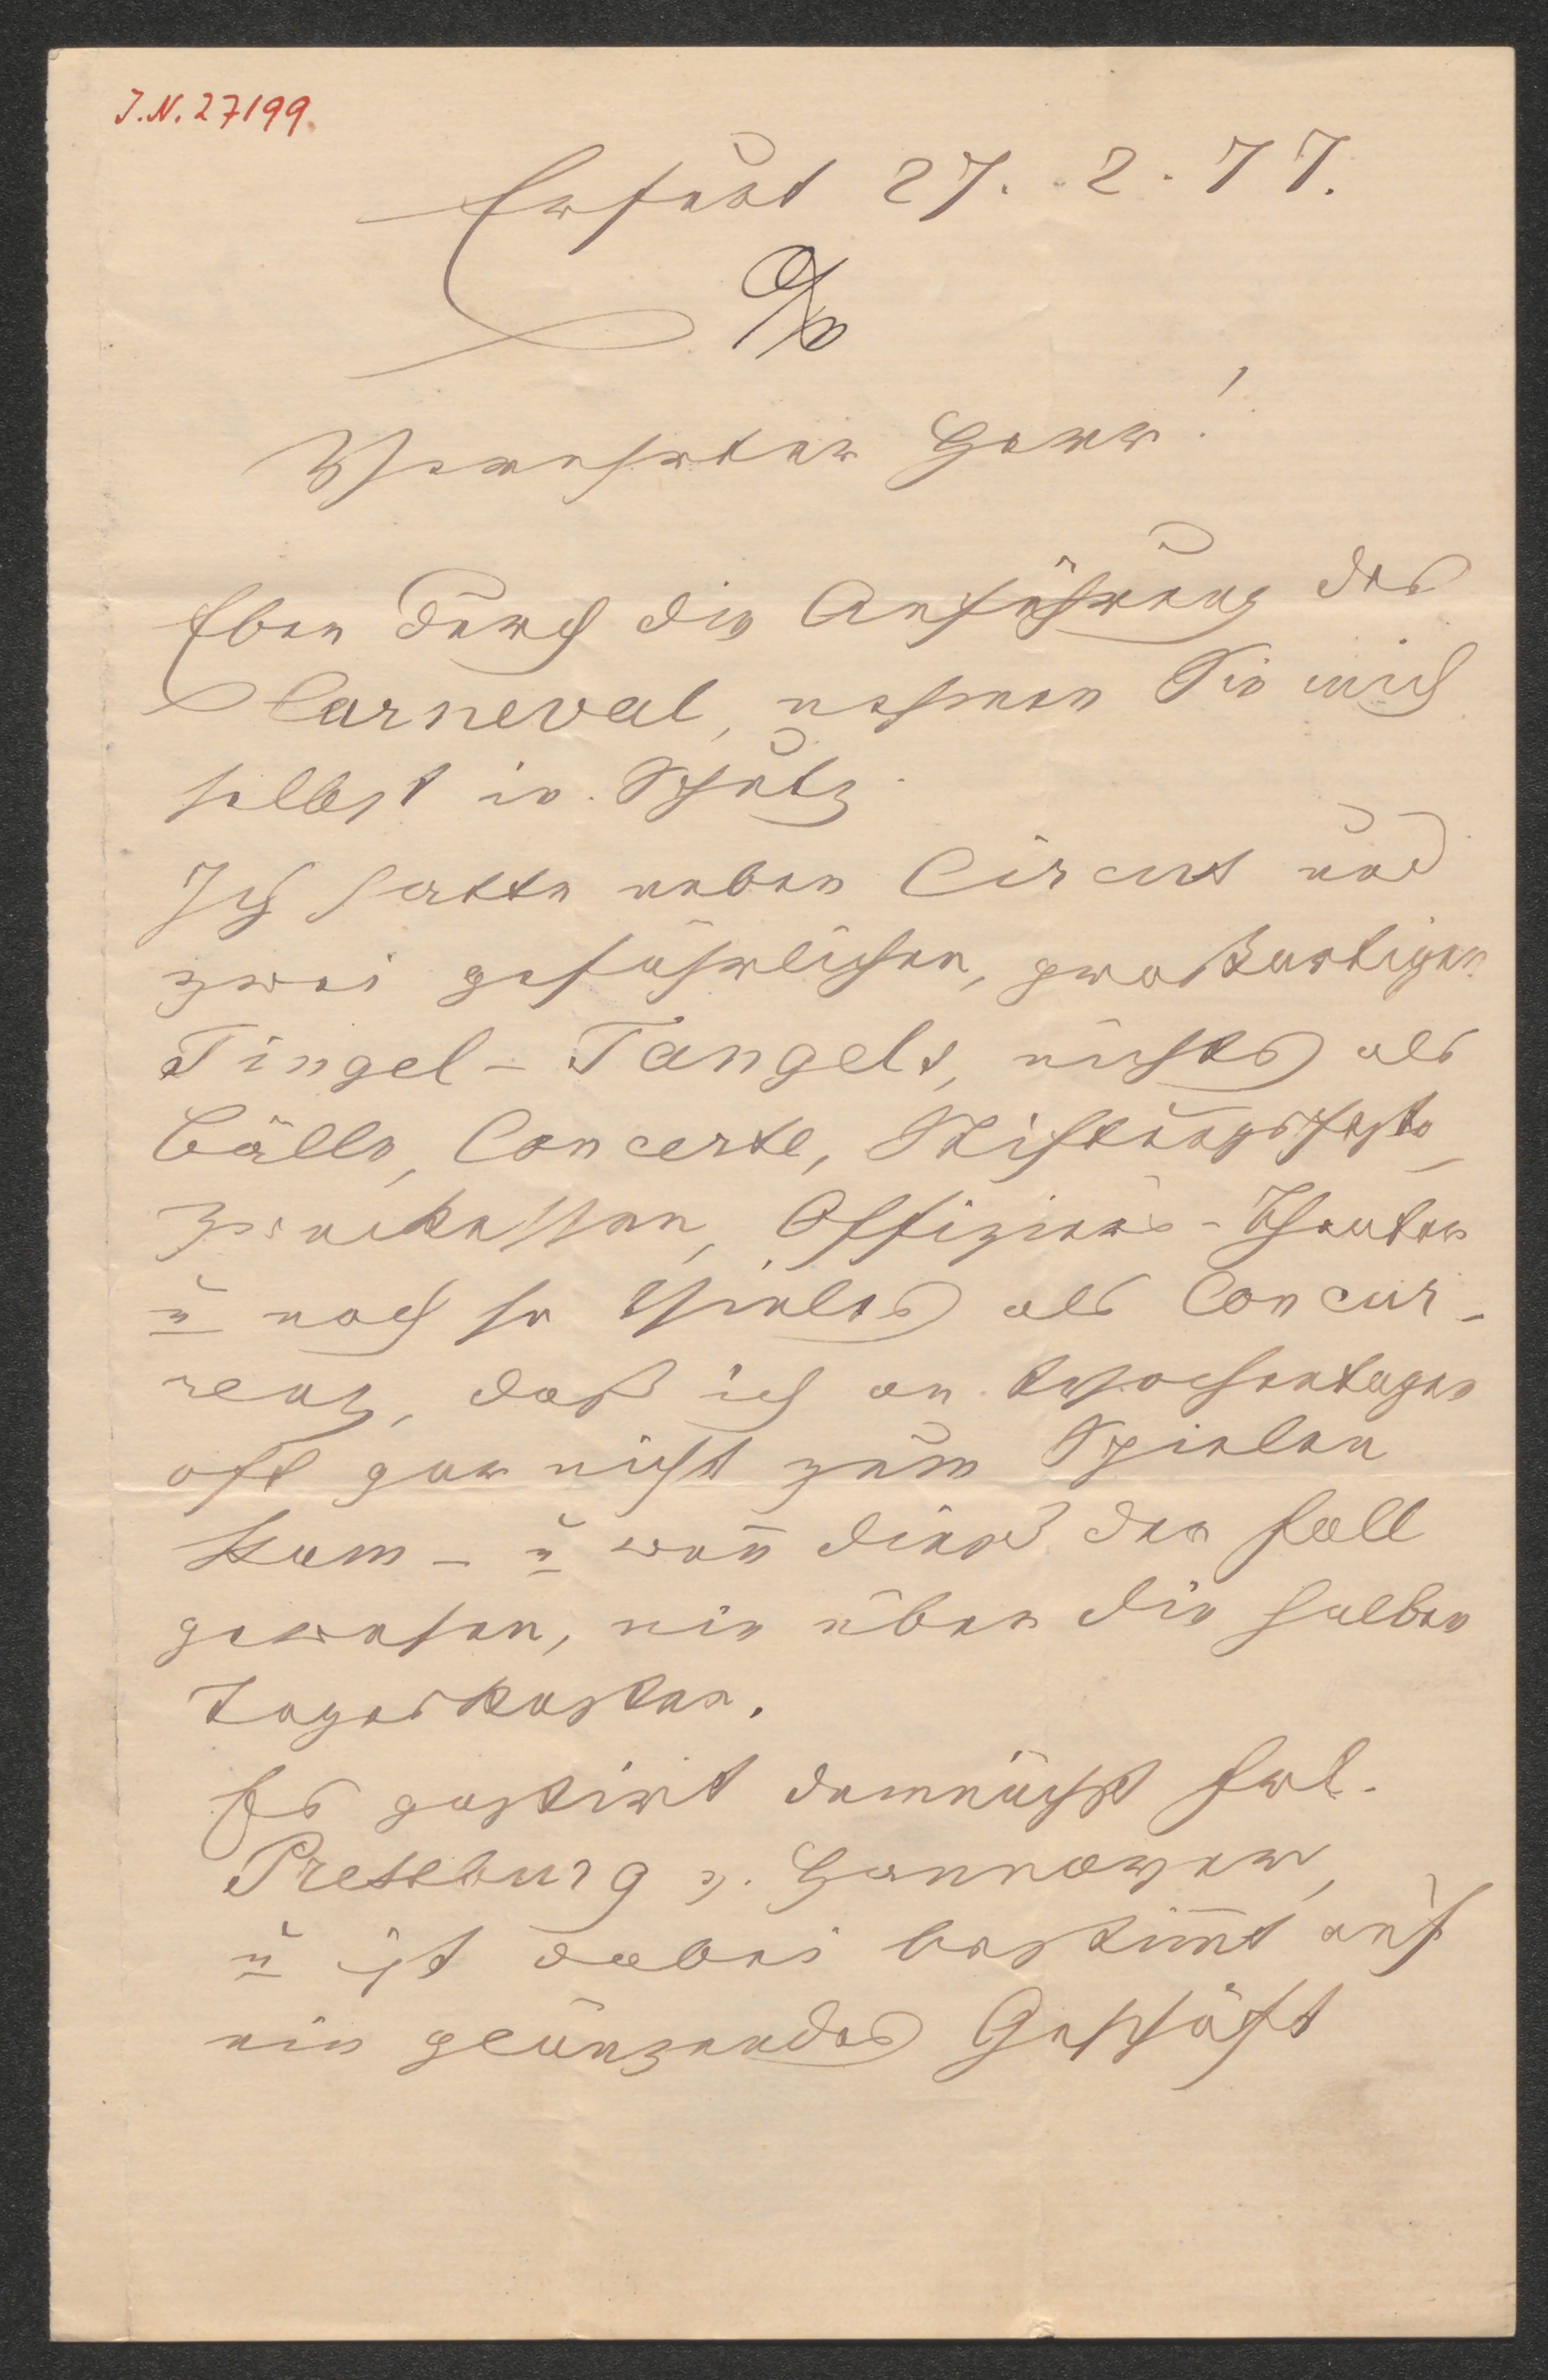 J.N. 27199.
Erfurt 27. 2. 77.
Verehrter Herr!
Eben durch die Anführung des
Carneval, nehmen Sie mich
selbst in Schutz.
Ich hatte neben Circus und
zwei gefährlichen, großartigen
Tingel-Tangels, nichts als
Bälle, Concerte, Stiftungsfeste,
Zweckessen, Offiziers-Theater
u noch so Vieles als Concur-
renz, daß ich an Wochentagen
oft gar nicht zum Spielen
kam - u wen̄ dieß der Fall
gewesen, nie über die halben
Tageskosten.
Es gastirt demnächst Frl.
Pressburg v. Hannover,
u ist dabei bestim̄t auf
ein glänzendes Geschäft